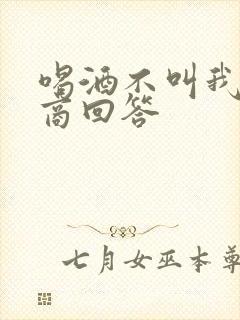 喝酒不叫我
高回答
七月女巫本尊